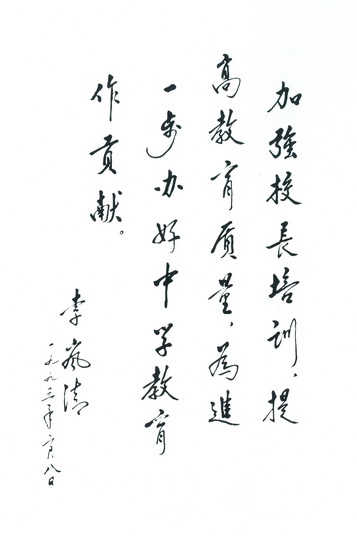 加強校長培训、提
高教育质量、為進
一步办好中学教育
作贡献。
李岚清
一九九三年六月八日